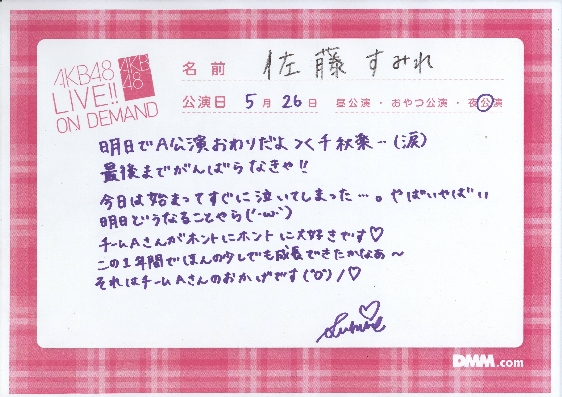 AKB48
LIVE!!
ON DEMAND
AKB
48
名前 佐藤すみれ
公演日 5月26日 昼公演・おやつ公演・夜公演
明日でA公演おわりだよっ千秋楽…(涙)
最後までがんばらなきゃ!!
今日は始まってすぐに泣いてしまった…。やばいやばい
明日どうなることやら(´・ω・`)
チームAさんがホントにホントに大好きです♡
この1年間でほんの少しでも成長できたかなあ～
それはチームAさんのおかげです(°O°)/♡
Sumire
DMM.com